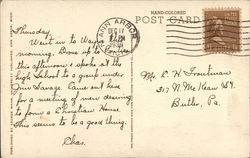 HAND-COLORED
POST CARD
ANN ARBOR
DEC 17
Thursday,
Went in to Wayne this
morning. Drove up to
this afternoon & spoke at the
high School to a group under
Orin Savage. Came out here
for a meeting of men desiring
to form a Christian House
This seems to be a good thing.
Chas.
Mr. C. H. Troutman
317 N. McKean St.
Butler, Pa.